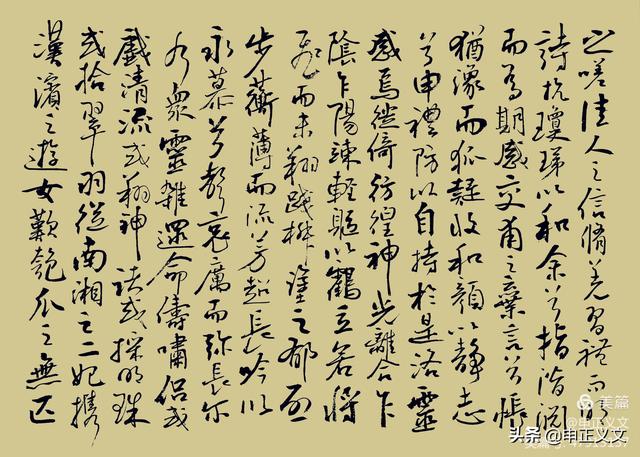 之嗟佳人之信脩羌習禮而明
詩抗瓊珶以和余兮指潛淵
而為期感交甫之棄言兮悵
猶豫而狐疑收和顏以靜志
兮申禮防以自持於是洛靈
感焉徙倚彷徨神光離合乍
陰乍陽竦輕軀以鶴立若將
飛而未翔踐椒塗之郁烈
步蘅薄而流芳超長吟以
永慕兮聲哀厲而彌長爾
乃眾靈雜遝命儔嘯侶或
戲清流或翔神渚或採明珠
或拾翠羽從南湘之二妃攜
漢濱之遊女歎匏瓜之無匹
美篇
头条 @申正义文